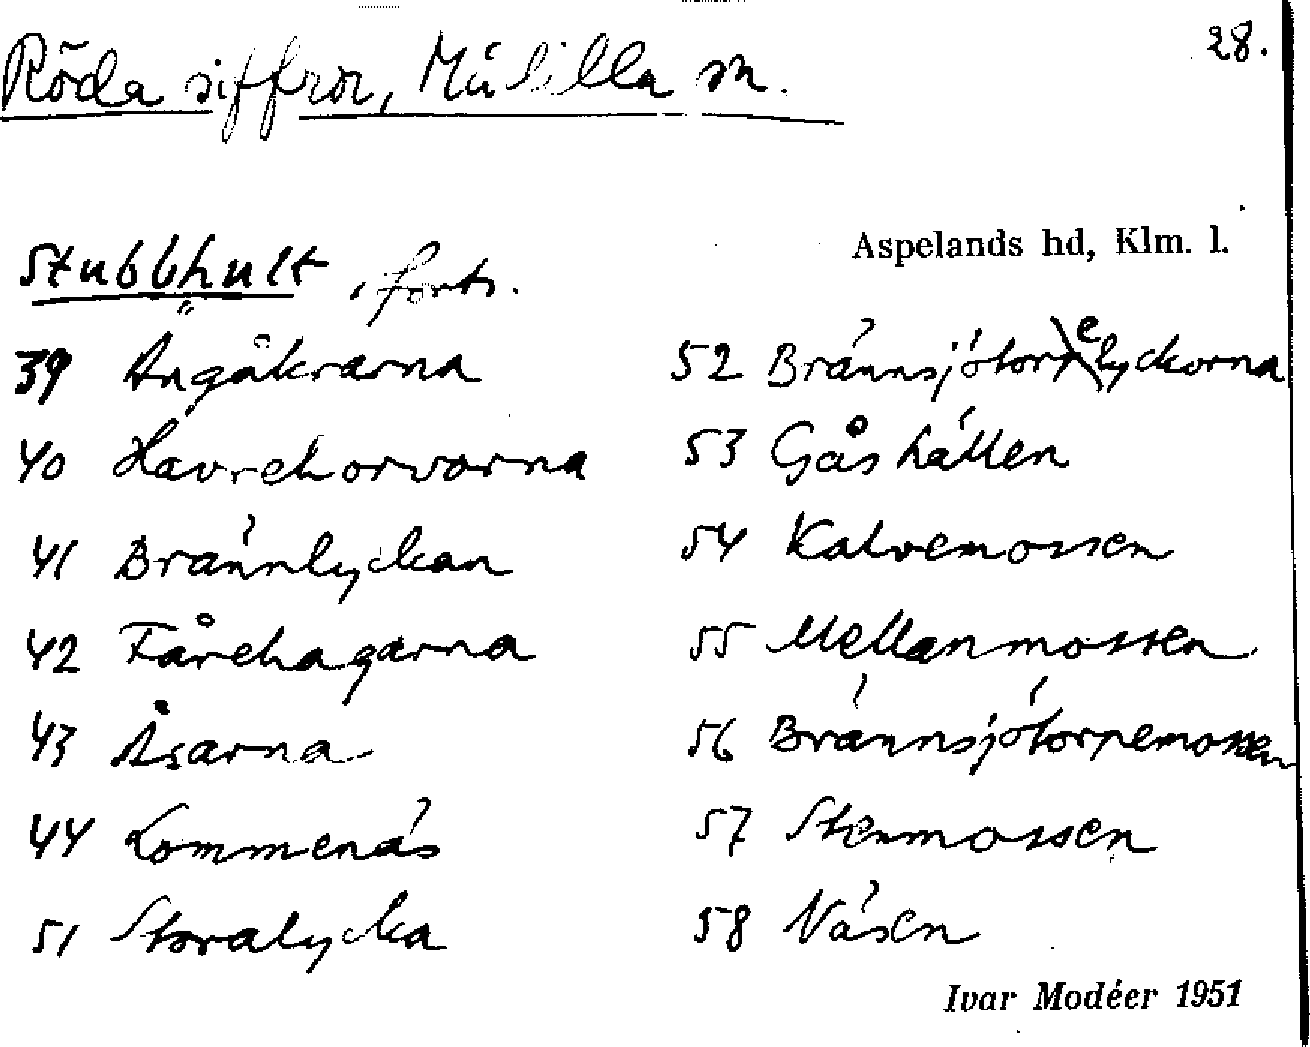 28.
Röda siffror, Målilla sn.
Aspelands hd, Klm. l.
Stubbhult, forts.
39 Ängåkrarna
40 Havrekorvorna
41 Brännlyckan
42 Fårehagarna
43 Åsarna
44 Lommenäs
51 Storalycka
52 Brännsjötorpelyckorna
53 Gåshällen
54 Kalvemossen
55 Mellanmossen
56 Brännsjötorpemossen
57 Stenmossen
58 Näsen
Ivar Modéer 1951